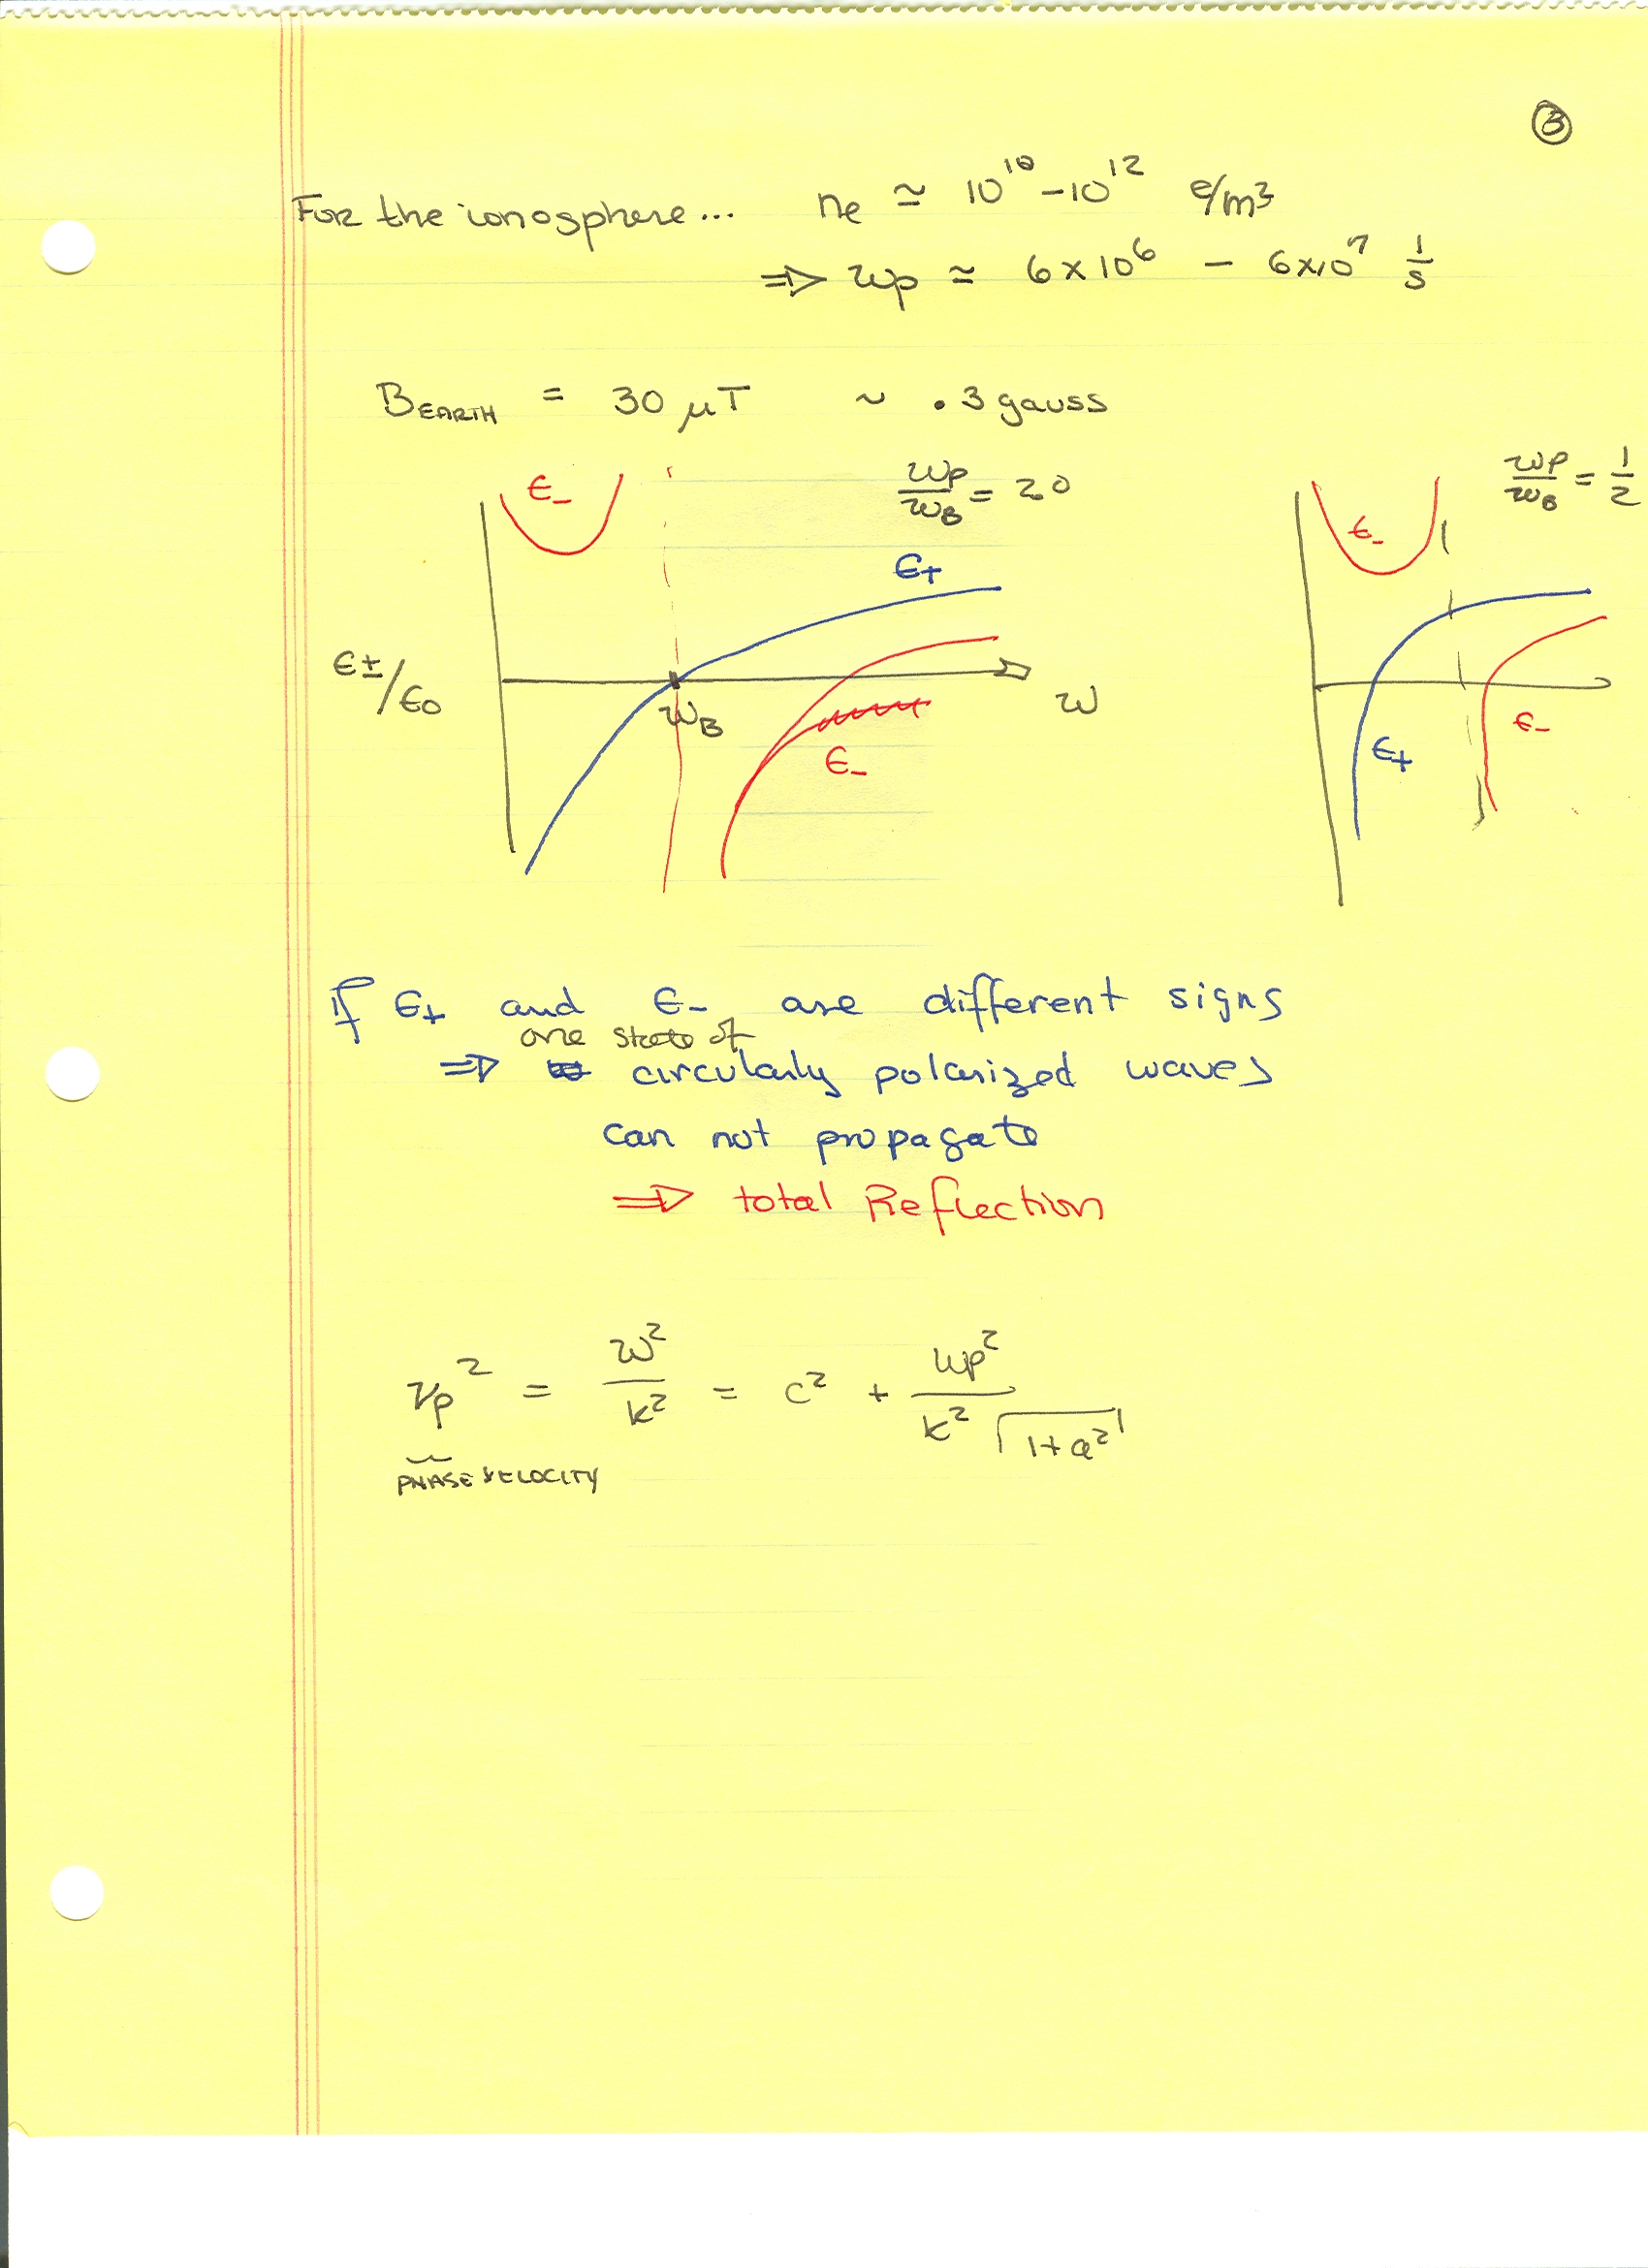 ③
For the ionosphere... ne ≃ 10^10 – 10^12 e/m³
⇒ ωp ≃ 6 × 10^6 – 6×10^7 1/s
B_EARTH = 30 μT ~ .3 gauss
ωp/ωB = 20
ωp/ωB = 1/2
ϵ_-
ϵ_+
ϵ±/ϵ0
ωB
ω
ϵ_-
ϵ_-
ϵ_+
ϵ_-
If ϵ+ and ϵ- are different signs
one state of
⇒ circularly polarized waves
can not propagate
⇒ total Reflection
vp² = ω²/k² = c² + ωp²/(k² √(1+a²))
PHASE VELOCITY